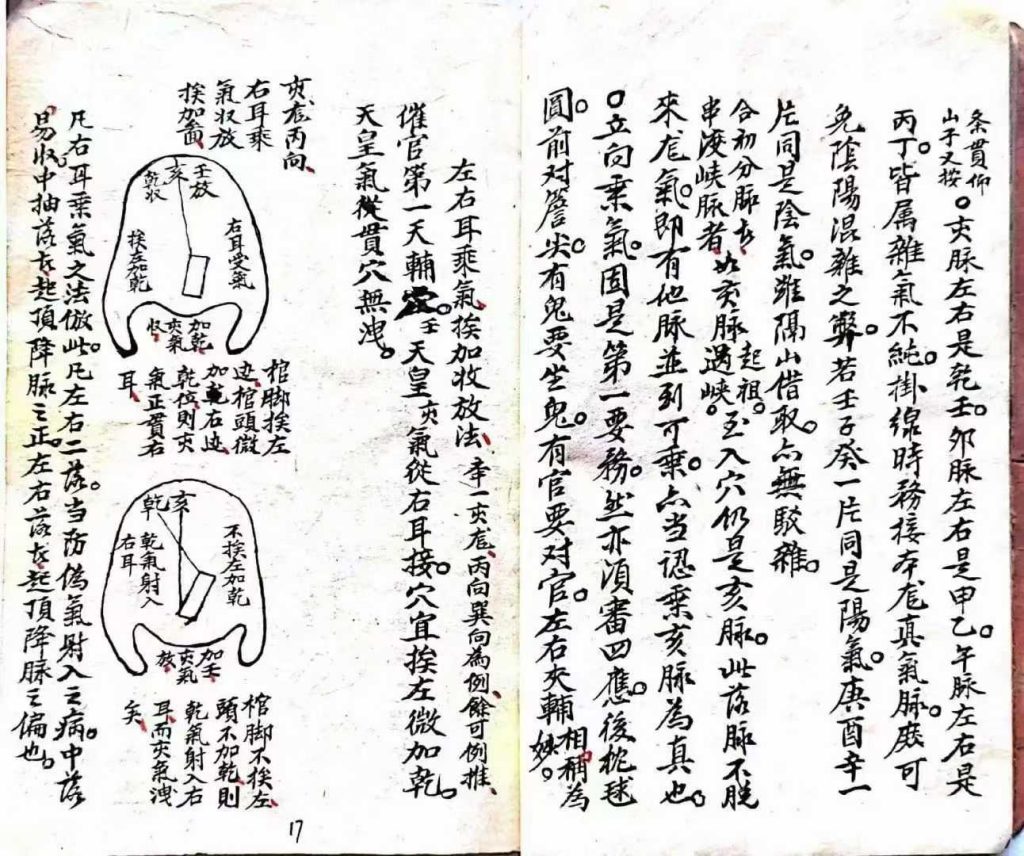 条貫仰
山子又按
亥脉左右是乾壬。卯脉左右是甲乙。午脉左右是
丙丁。皆属雜氣不純。掛線時務接本龙真氣脉。庶可
免陰陽混雜之弊。若壬子癸一片同是陽氣。庚酉辛一
片同是陰氣。雖隔山借取。亦無駁雜。
合初分脉去、如亥脉起祖。至入穴仍是亥脉。此落脉不脱
串渡峡脉者、過峡。
來龙氣。即有他脉並列可乘。亦当認乘亥脉為真也。
〇立向乘氣。固是第一要務。然亦須審四應。後枕球
圓。前对簷尖。有鬼要坐鬼。有官要对官。左右夾輔相稱為
妙。
左右耳乘氣、挨加收放法、幸一亥龙、丙向巽向為例、餘可例推、
催官第一天輔壬。天皇亥氣從右耳接。穴宜挨左微加乾。
天皇氣從貫穴無洩。
亥龙丙向、
右耳乘
氣収放
挨加啚、
亥
壬放
乾収
右耳受氣
挨左加乾
加乾
亥氣
収
棺脚挨左
边、棺頭微
加右边
乾位則亥
氣正貫右
耳、
亥
乾
不挨左加乾
乾氣射入
右耳
加壬
亥氣
放
棺脚不挨左、
頭不加乾、則
乾氣射入右
耳而亥氣洩
矣、
凡右耳乘氣之法倣此。凡左右二落。当防偽氣射入之病。中落
易収。中抽落去起頂降脉之正。左右落去起頂降脉之偏也。
17